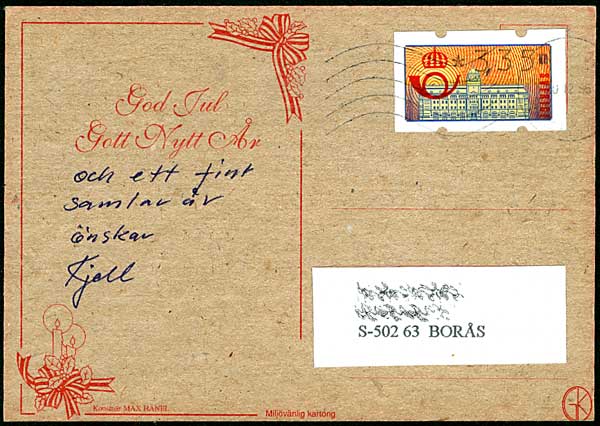 God Jul
Gott Nytt År
och ett fint
samlar år
önskar
Kjell
*3,35
S-502 63 BORÅS
Konstnär MAX HÄNEL
Miljövänlig kartong